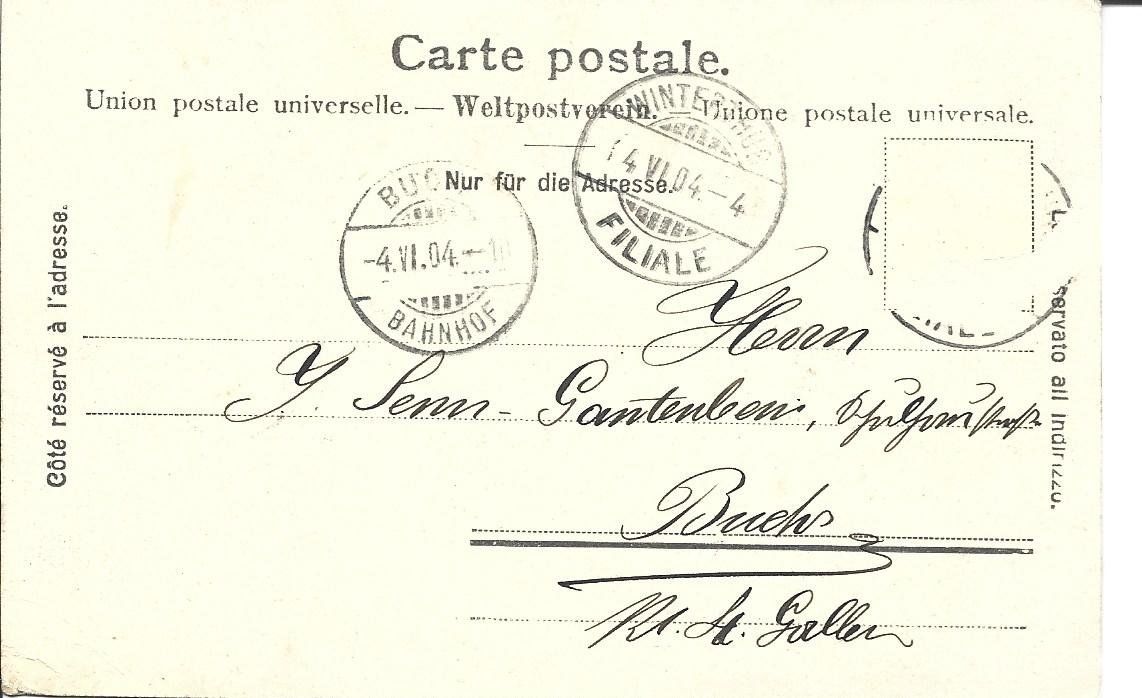 Carte postale.
Union postale universelle. — Weltpostverein. — Unione postale universale.
Nur für die Adresse.
WINTERTHUR
4 VI.04.–4
FILIALE
BUCHS
–4.VI.04.–10
BAHNHOF
Côté réservé à l'adresse.
servato all indirizzo.
Herrn
J. Senn - Gantenbein, Schulhausstrasse
Buchs
Kt. St. Gallen